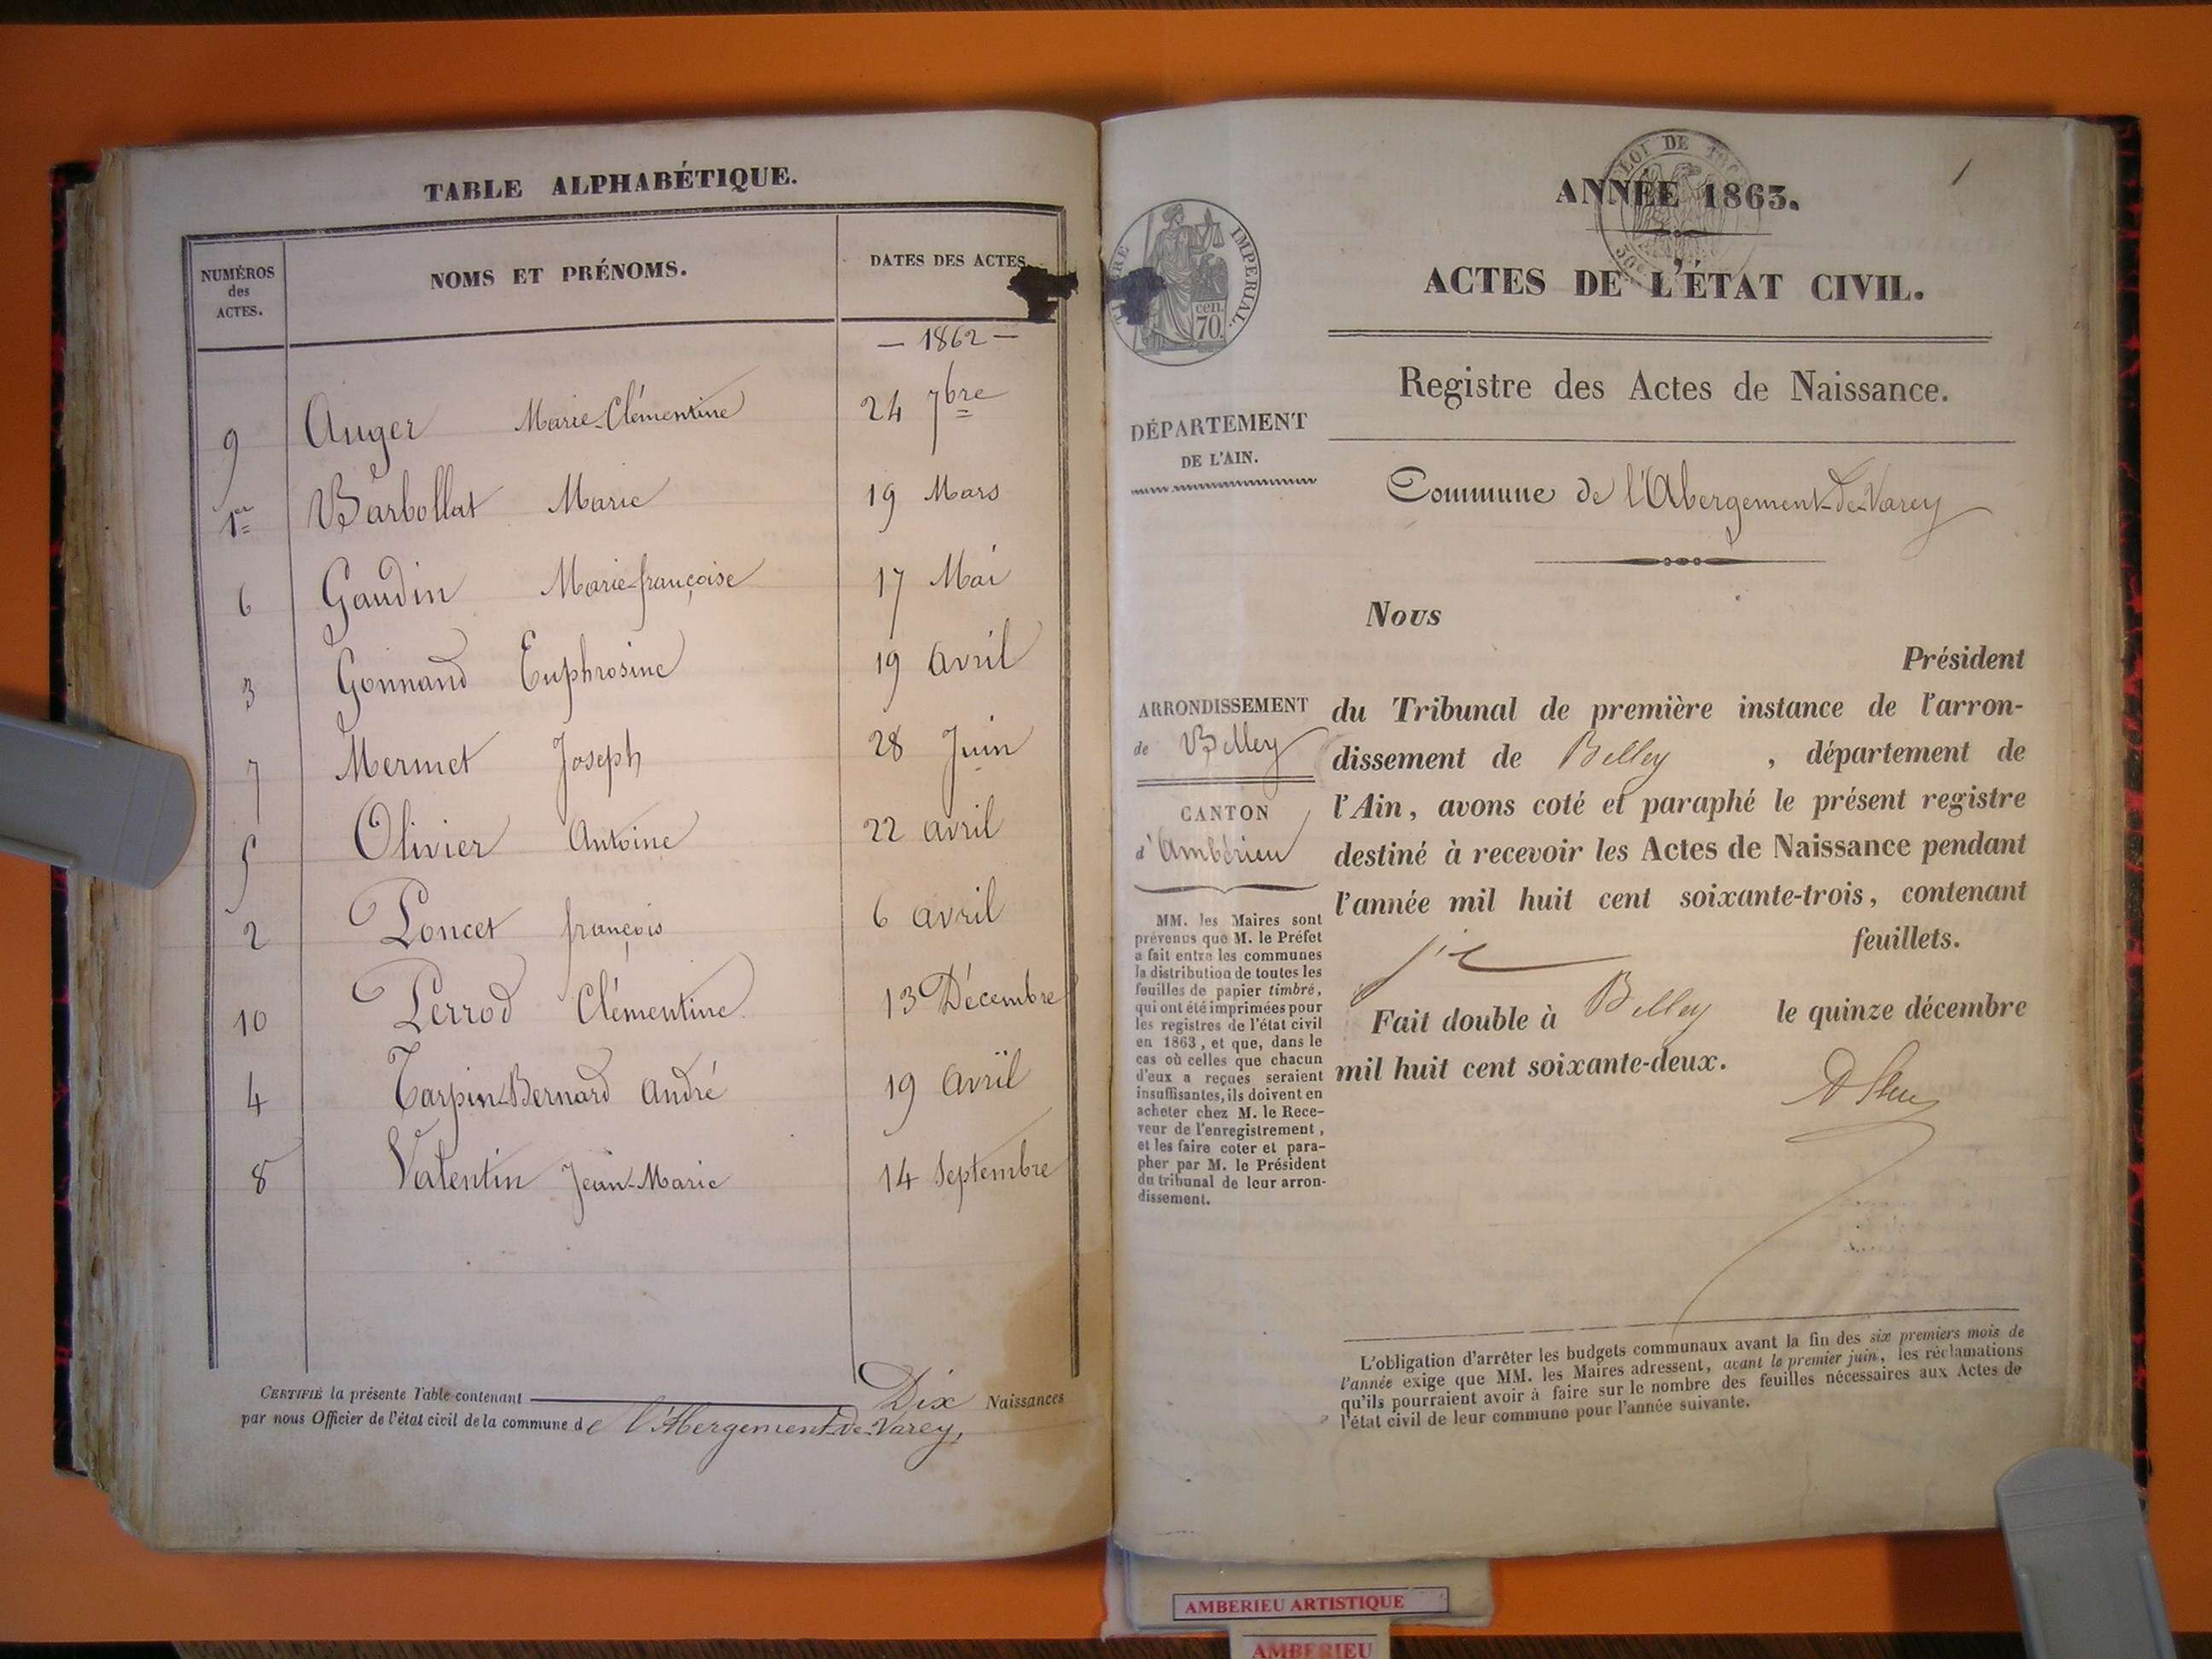 TABLE ALPHABÉTIQUE.
NUMÉROS des ACTES. NOMS ET PRÉNOMS. DATES DES ACTES.
— 1862 —
9 Auger Marie-Clémentine 24 7bre
1er Barbollat Marie 19 Mars
6 Gaudin Marie-françoise 17 Mai
3 Gonnand Euphrosine 19 avril
7 Mermet Joseph 28 Juin
5 Olivier Antoine 22 avril
2 Poncet françois 6 avril
10 Perrod Clémentine 13 Décembre
4 Tarpin-Bernard André 19 Avril
8 Valentin Jean-Marie 14 Septembre
CERTIFIÉ la présente Table contenant Dix Naissances
par nous Officier de l'état civil de la commune de l'Abergement-de-Varey,
1
LOI DE
ANNÉE 1863.
ACTES DE L'ÉTAT CIVIL.
IMPERIAL.
cen.
70.
Registre des Actes de Naissance.
DÉPARTEMENT
DE L'AIN.
Commune de l'Abergement-de-Varey
Nous
Président
du Tribunal de première instance de l'arron-
dissement de Belley , département de
l'Ain, avons coté et paraphé le présent registre
destiné à recevoir les Actes de Naissance pendant
l'année mil huit cent soixante-trois, contenant
six feuillets.
Fait double à Belley le quinze décembre
mil huit cent soixante-deux.
ARRONDISSEMENT
de Belley
CANTON
d'Ambérieu
MM. les Maires sont
prévenus que M. le Préfet
a fait entre les communes
la distribution de toutes les
feuilles de papier timbré,
qui ont été imprimées pour
les registres de l'état civil
en 1863, et que, dans le
cas où celles que chacun
d'eux a reçues seraient
insuffisantes, ils doivent en
acheter chez M. le Rece-
veur de l'enregistrement,
et les faire coter et para-
pher par M. le Président
du tribunal de leur arron-
dissement.
L'obligation d'arrêter les budgets communaux avant la fin des six premiers mois de
l'année exige que MM. les Maires adressent, avant le premier juin, les réclamations
qu'ils pourraient avoir à faire sur le nombre des feuilles nécessaires aux Actes de
l'état civil de leur commune pour l'année suivante.
AMBERIEU ARTISTIQUE
AMBERIEU